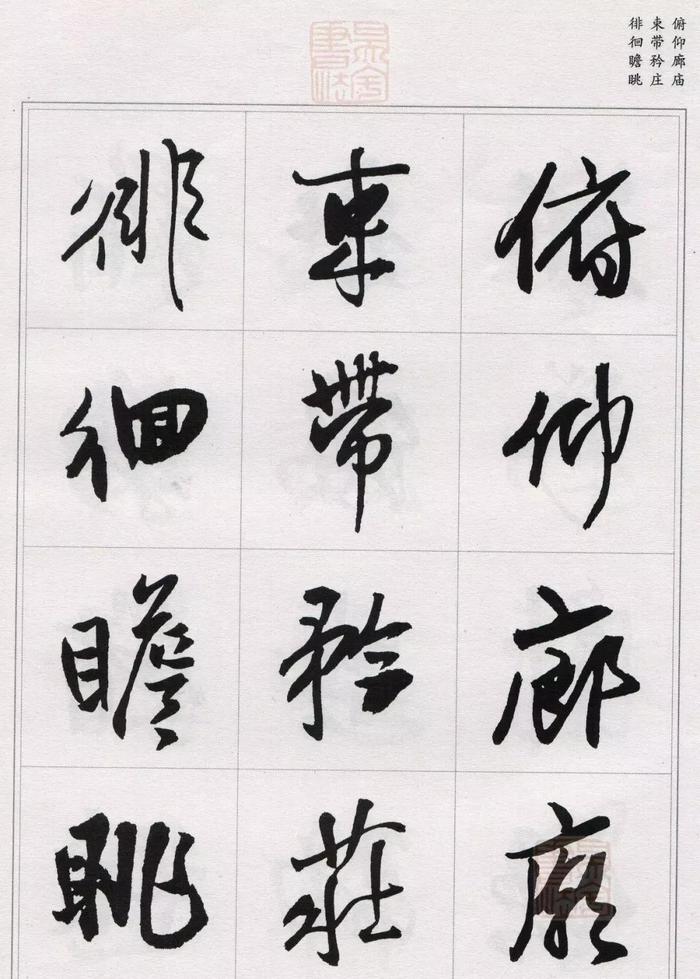 俯仰廊庙
束带矜庄
徘徊瞻眺
俯仰廊廟
束帶矜莊
徘徊瞻眺